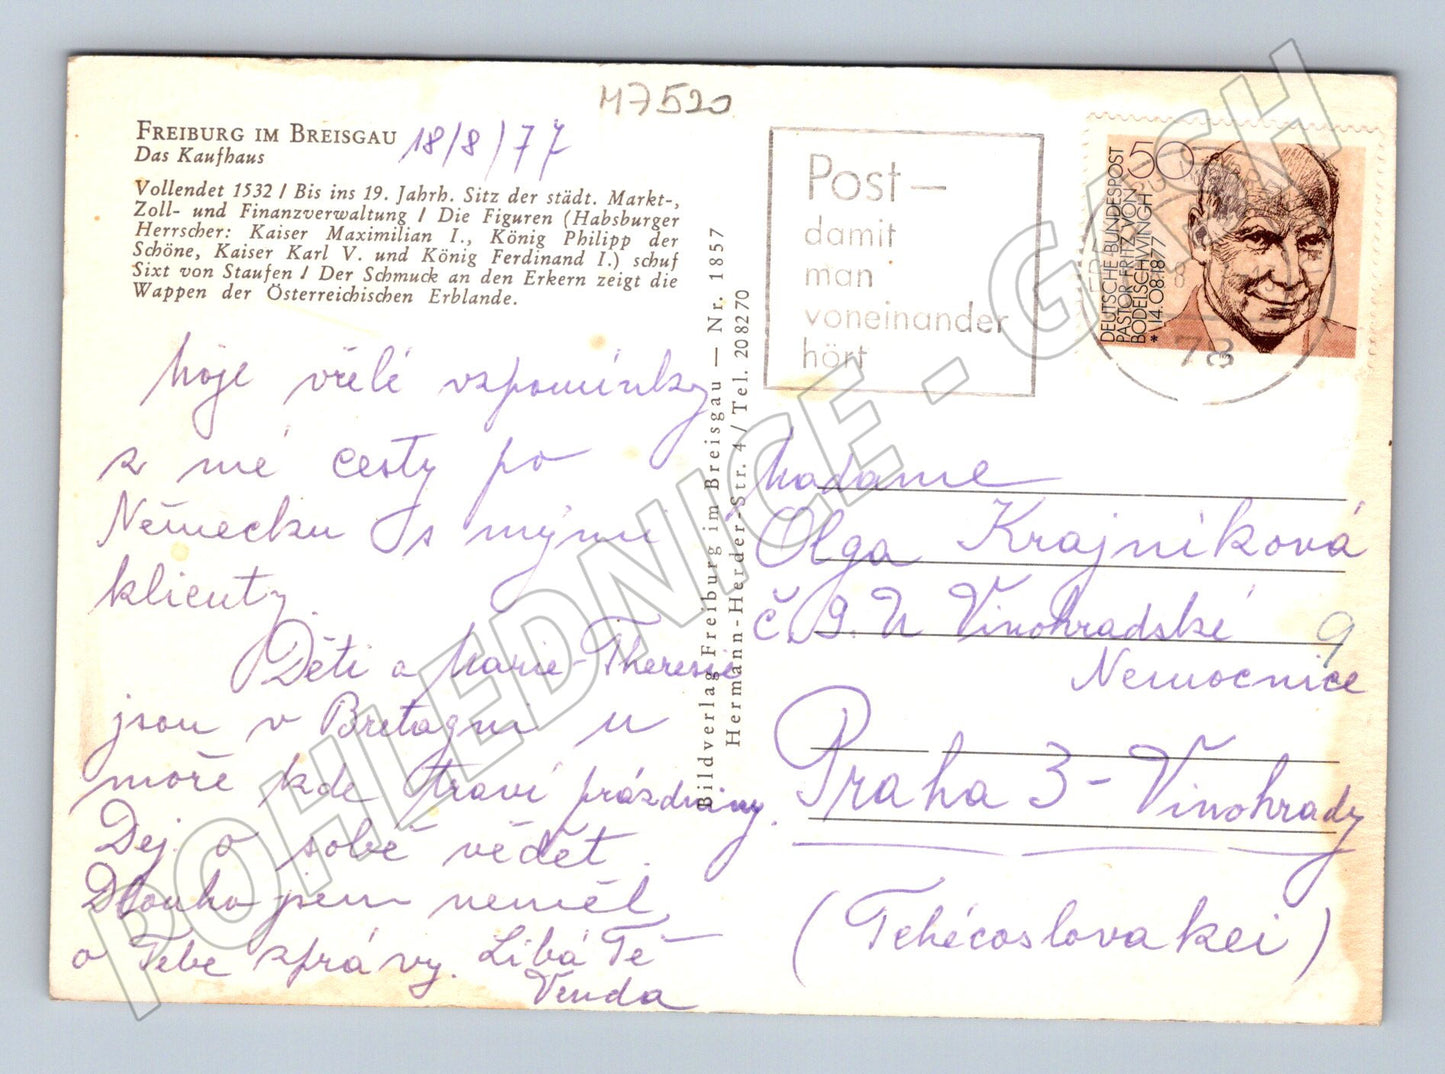 M7520
FREIBURG IM BREISGAU 18/8/77
Das Kaufhaus
Vollendet 1532 / Bis ins 19. Jahrh. Sitz der städt. Markt-,
Zoll- und Finanzverwaltung / Die Figuren (Habsburger
Herrscher: Kaiser Maximilian I., König Philipp der
Schöne, Kaiser Karl V. und König Ferdinand I.) schuf
Sixt von Staufen / Der Schmuck an den Erkern zeigt die
Wappen der Österreichischen Erblande.
Moje vřelé vzpomínky
z mé cesty po
Německu s mými
klienty.
Děti a Marie-Theresie
jsou v Bretagni u
moře kde tráví prázdniny.
Dej o sobě vědět.
Dlouho jsem neměl
o Tebe zprávy. Líbá Tě
Venda
Bildverlag Freiburg im Breisgau — Nr. 1857
Hermann-Herder-Str. 4 / Tel. 208270
Post—
damit
man
voneinander
hört
DEUTSCHE BUNDESPOST
PASTOR FRITZ VON
BODELSCHWINGH
* 14.08.1877
50
78
Madame
Olga Krajníková
č. 9. U Vinohradské 9
Nemocnice
Praha 3 - Vinohrady
(Tchécoslovakei)
POHLEDNICE - GASH